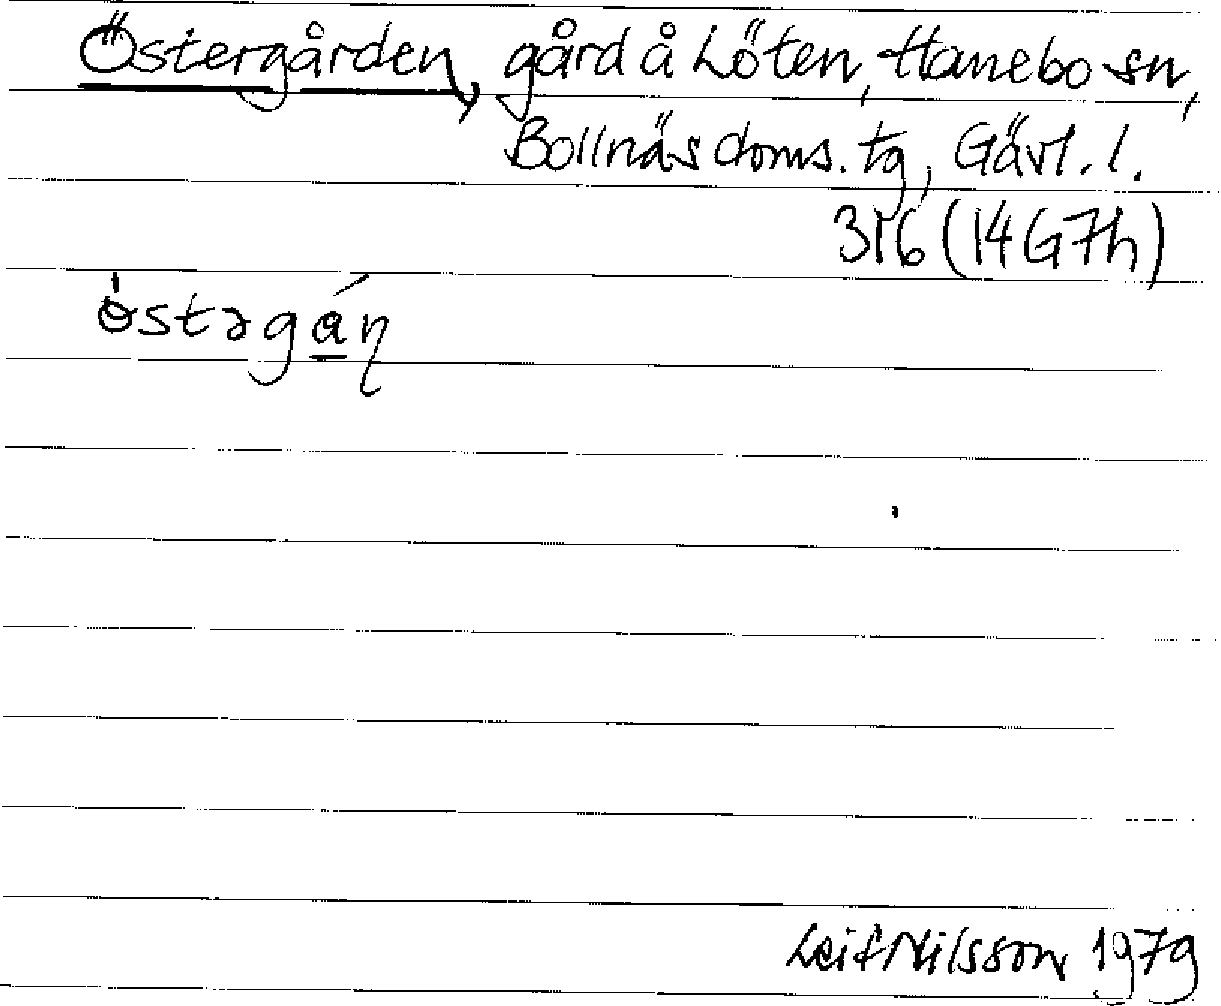 Östergården, gård å Löten, Hanebo sn,
Bollnäs doms. tg, Gävl. l.
316 (14G7h)
Leif Nilsson 1979